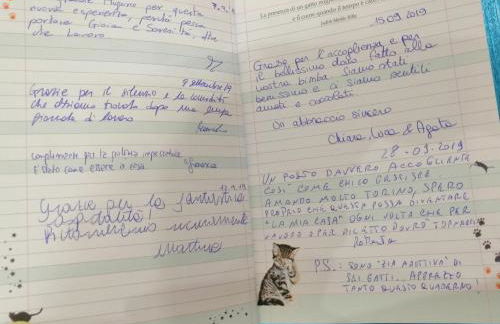 7.9.19
per questa
nuova esperienza,
portare Gioia e Serenità, oltre
che Lavoro
9 settembre 19
Grazie per il silenzio e la comodità
che abbiamo trovato dopo una lunga
giornata di lavoro
complimenti per la pulizia impeccabile
è stato come essere a casa
Bianca
Grazie per la fantastica
ospitalità!
Ritorneremo sicuramente
Martina
La presenza di un gatto
15.09.2019
Grazie per l'accoglienza e per
il bellissimo dono fatto alla
nostra bimba. Siamo stati
benissimo e ci siamo sentiti
amati e coccolati
Un abbraccio sincero
Chiara, Luca & Agata
28-09-2019
UN POSTO DAVVERO ACCOGLIENTE
COSÌ COME CHI CO GESTISCE.
AMANDO MOLTO TORINO, SPERO
PROPRIO CHE QUESTA POSSA DIVENTARE
"LA MIA CASA" OGNI VOLTA CHE PER
LAVORO O PER DILETTO DOVRÒ TORNARCI
P.S.: SONO "ZIA ADOTTIVA" DI
SEI GATTI. APPREZZO
TANTO QUESTO QUADERNO!